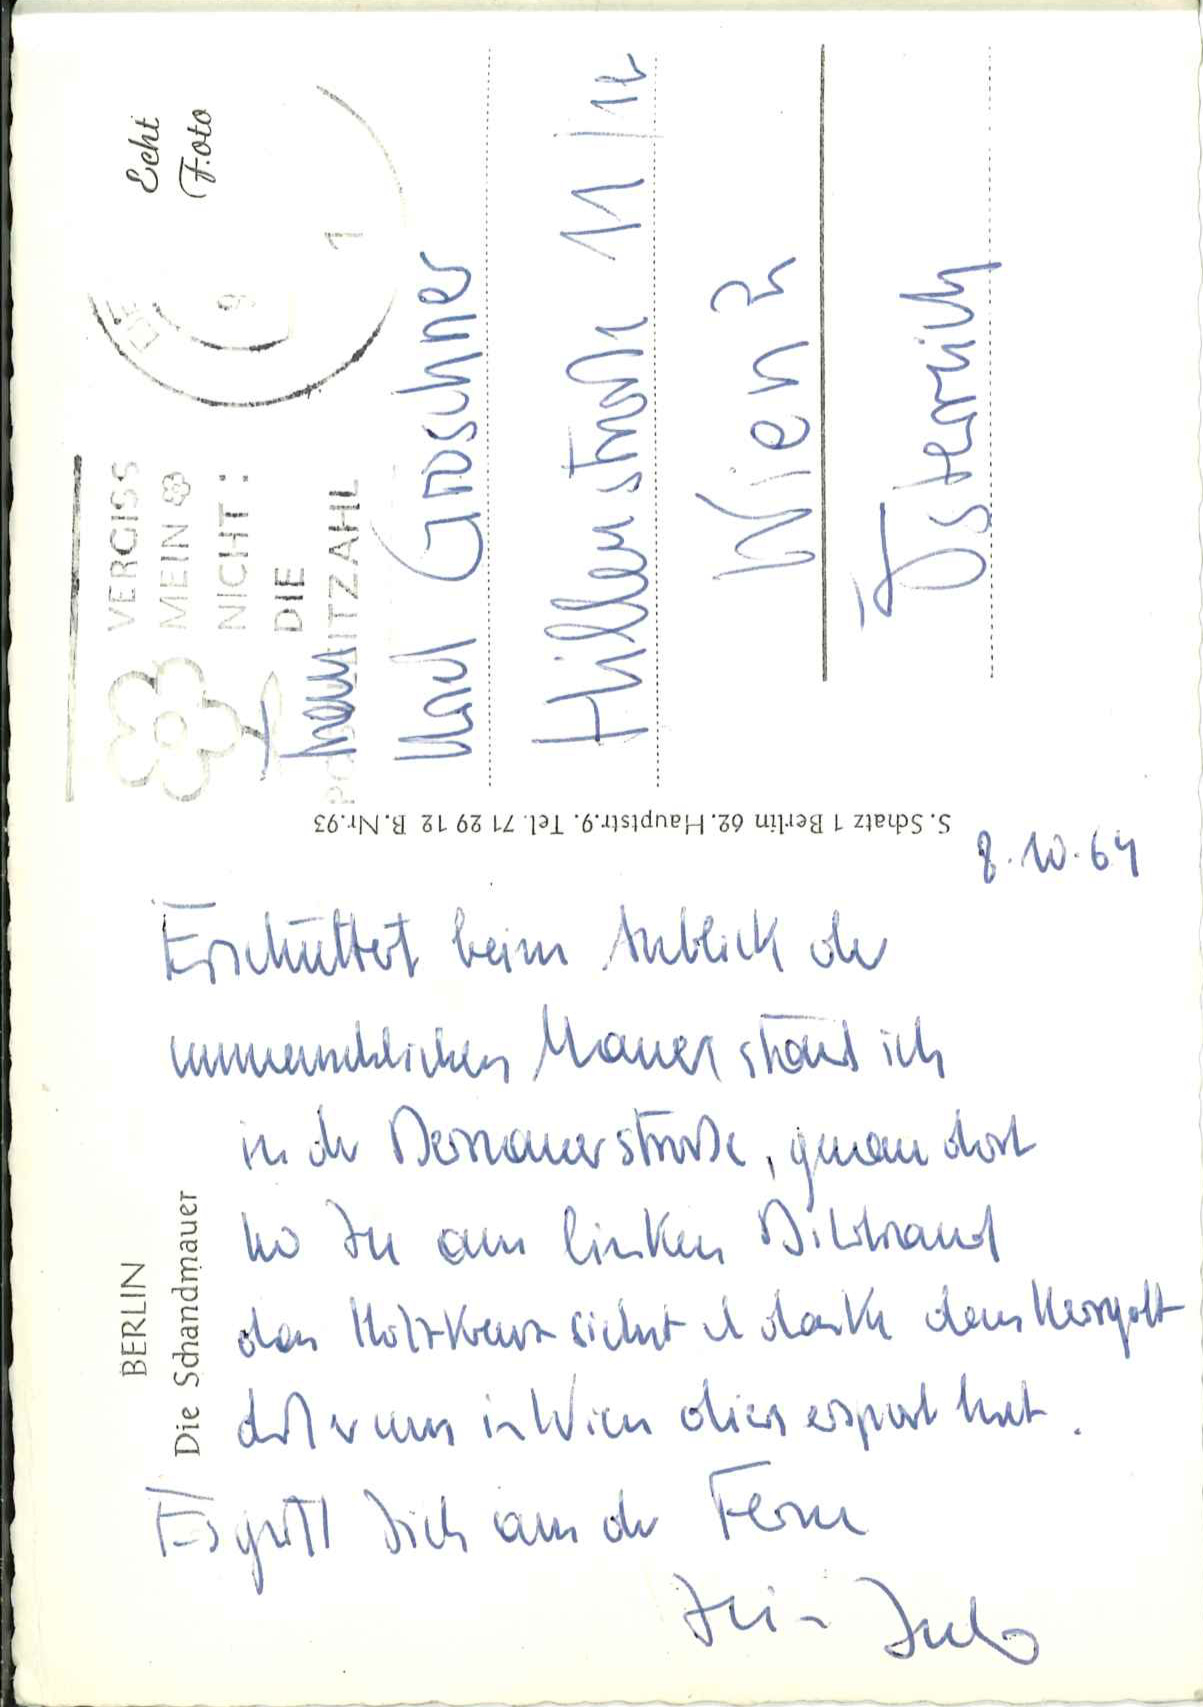 BERLIN
Die Schandmauer
8.10.64
Erschüttert beim Anblick der
unmenschlichen Mauer stand ich
in der Bernauerstraße, genau dort
wo Du am linken Bildrand
das Holzkreuz siehst u danke dem Herrgott
daß er uns in Wien dies erspart hat.
Es grüßt Dich aus der Ferne
Dein
S. Schatz 1 Berlin 62. Hauptstr. 9. Tel. 71 29 12 B.Nr. 93
VERGISS
MEIN
NICHT:
DIE
POSTLEITZAHL
9
1
Echt
Foto
Groschner
11/12
Wien 2
Österreich